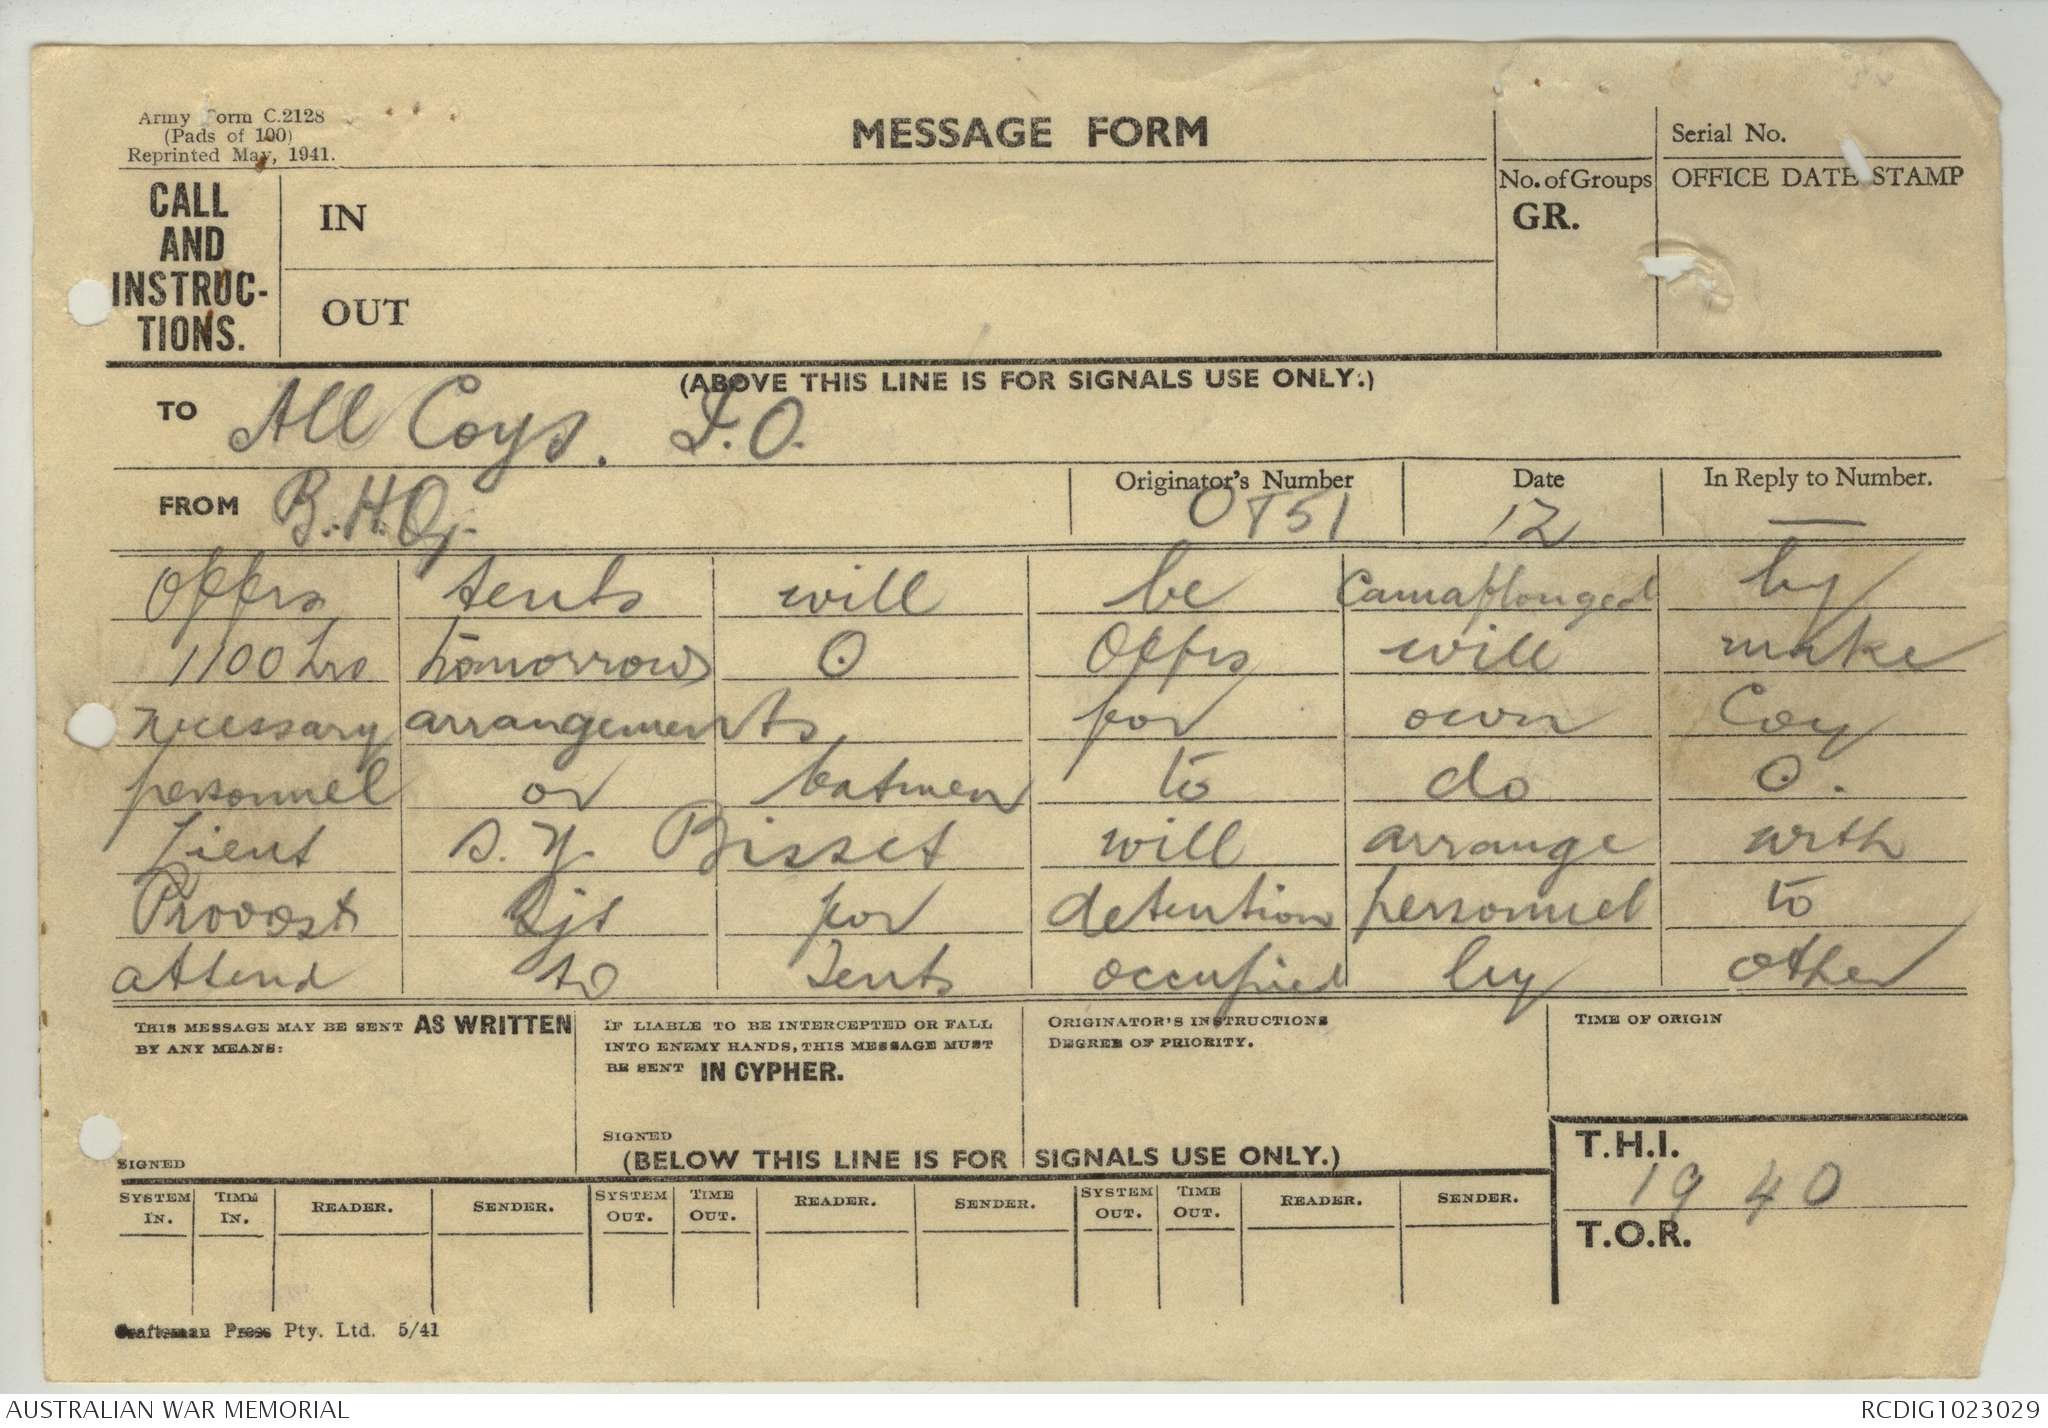 Army Form C.2128
(Pads of 100)
Reprinted May, 1941.
MESSAGE FORM
Serial No.
CALL
AND
INSTRUC-
TIONS.
IN
OUT
No. of Groups
GR.
OFFICE DATE STAMP
(ABOVE THIS LINE IS FOR SIGNALS USE ONLY.)
TO All Coys. I.O.
FROM B.H.Q.
Originator's Number
OT51
Date
12
In Reply to Number.
—
Offrs tents will be camaflouged by
1100 hrs tomorrow O Offrs will make
necessary arrangements for own Coy
personnel or batmen to do O.
Lieut S.Y. Bisset will arrange with
Provost Sjt for detention personnel to
attend to Tents occupied by other
THIS MESSAGE MAY BE SENT AS WRITTEN
BY ANY MEANS:
SIGNED
IF LIABLE TO BE INTERCEPTED OR FALL
INTO ENEMY HANDS, THIS MESSAGE MUST
BE SENT IN CYPHER.
SIGNED
ORIGINATOR'S INSTRUCTIONS
DEGREE OF PRIORITY.
TIME OF ORIGIN
(BELOW THIS LINE IS FOR SIGNALS USE ONLY.)
T.H.I.
1940
T.O.R.
SYSTEM IN. TIME IN. READER. SENDER. SYSTEM OUT. TIME OUT. READER. SENDER. SYSTEM OUT. TIME OUT. READER. SENDER.
Craftsman Press Pty. Ltd. 5/41
AUSTRALIAN WAR MEMORIAL
RCDIG1023029